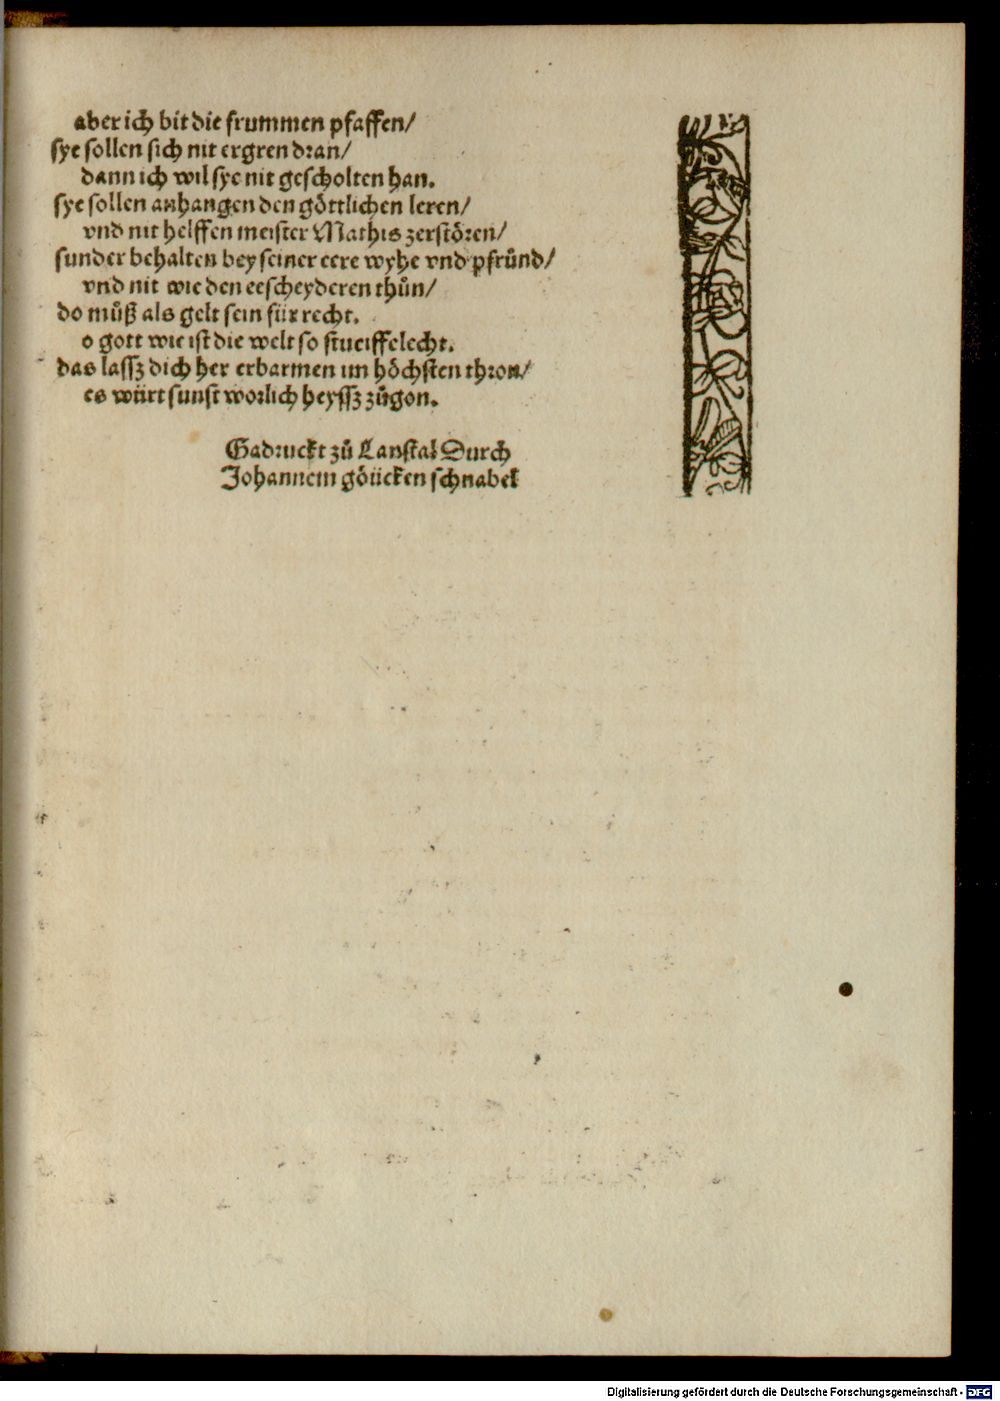 aber ich bit die frummen pfaffen/
sye sollen sich nit ergren dran/
dann ich wil sye nit gescholten han.
sye sollen anhangen den göttlichen leren/
vnd nit helffen meister Mathis zerstören/
sunder behalten bey seiner eere wyhe vnd pfrůnd/
vnd nit wie den eescheyderen thůn/
do můß als gelt sein für recht.
o gott wie ist die welt so stueiffelecht.
das lassz dich her erbarmen im höchsten thron/
es würt sunst worlich heyssz zůgon.
Gadruckt zů Lanstal Durch
Johannem göücken schnabel
Digitalisierung gefördert durch die Deutsche Forschungsgemeinschaft - DFG